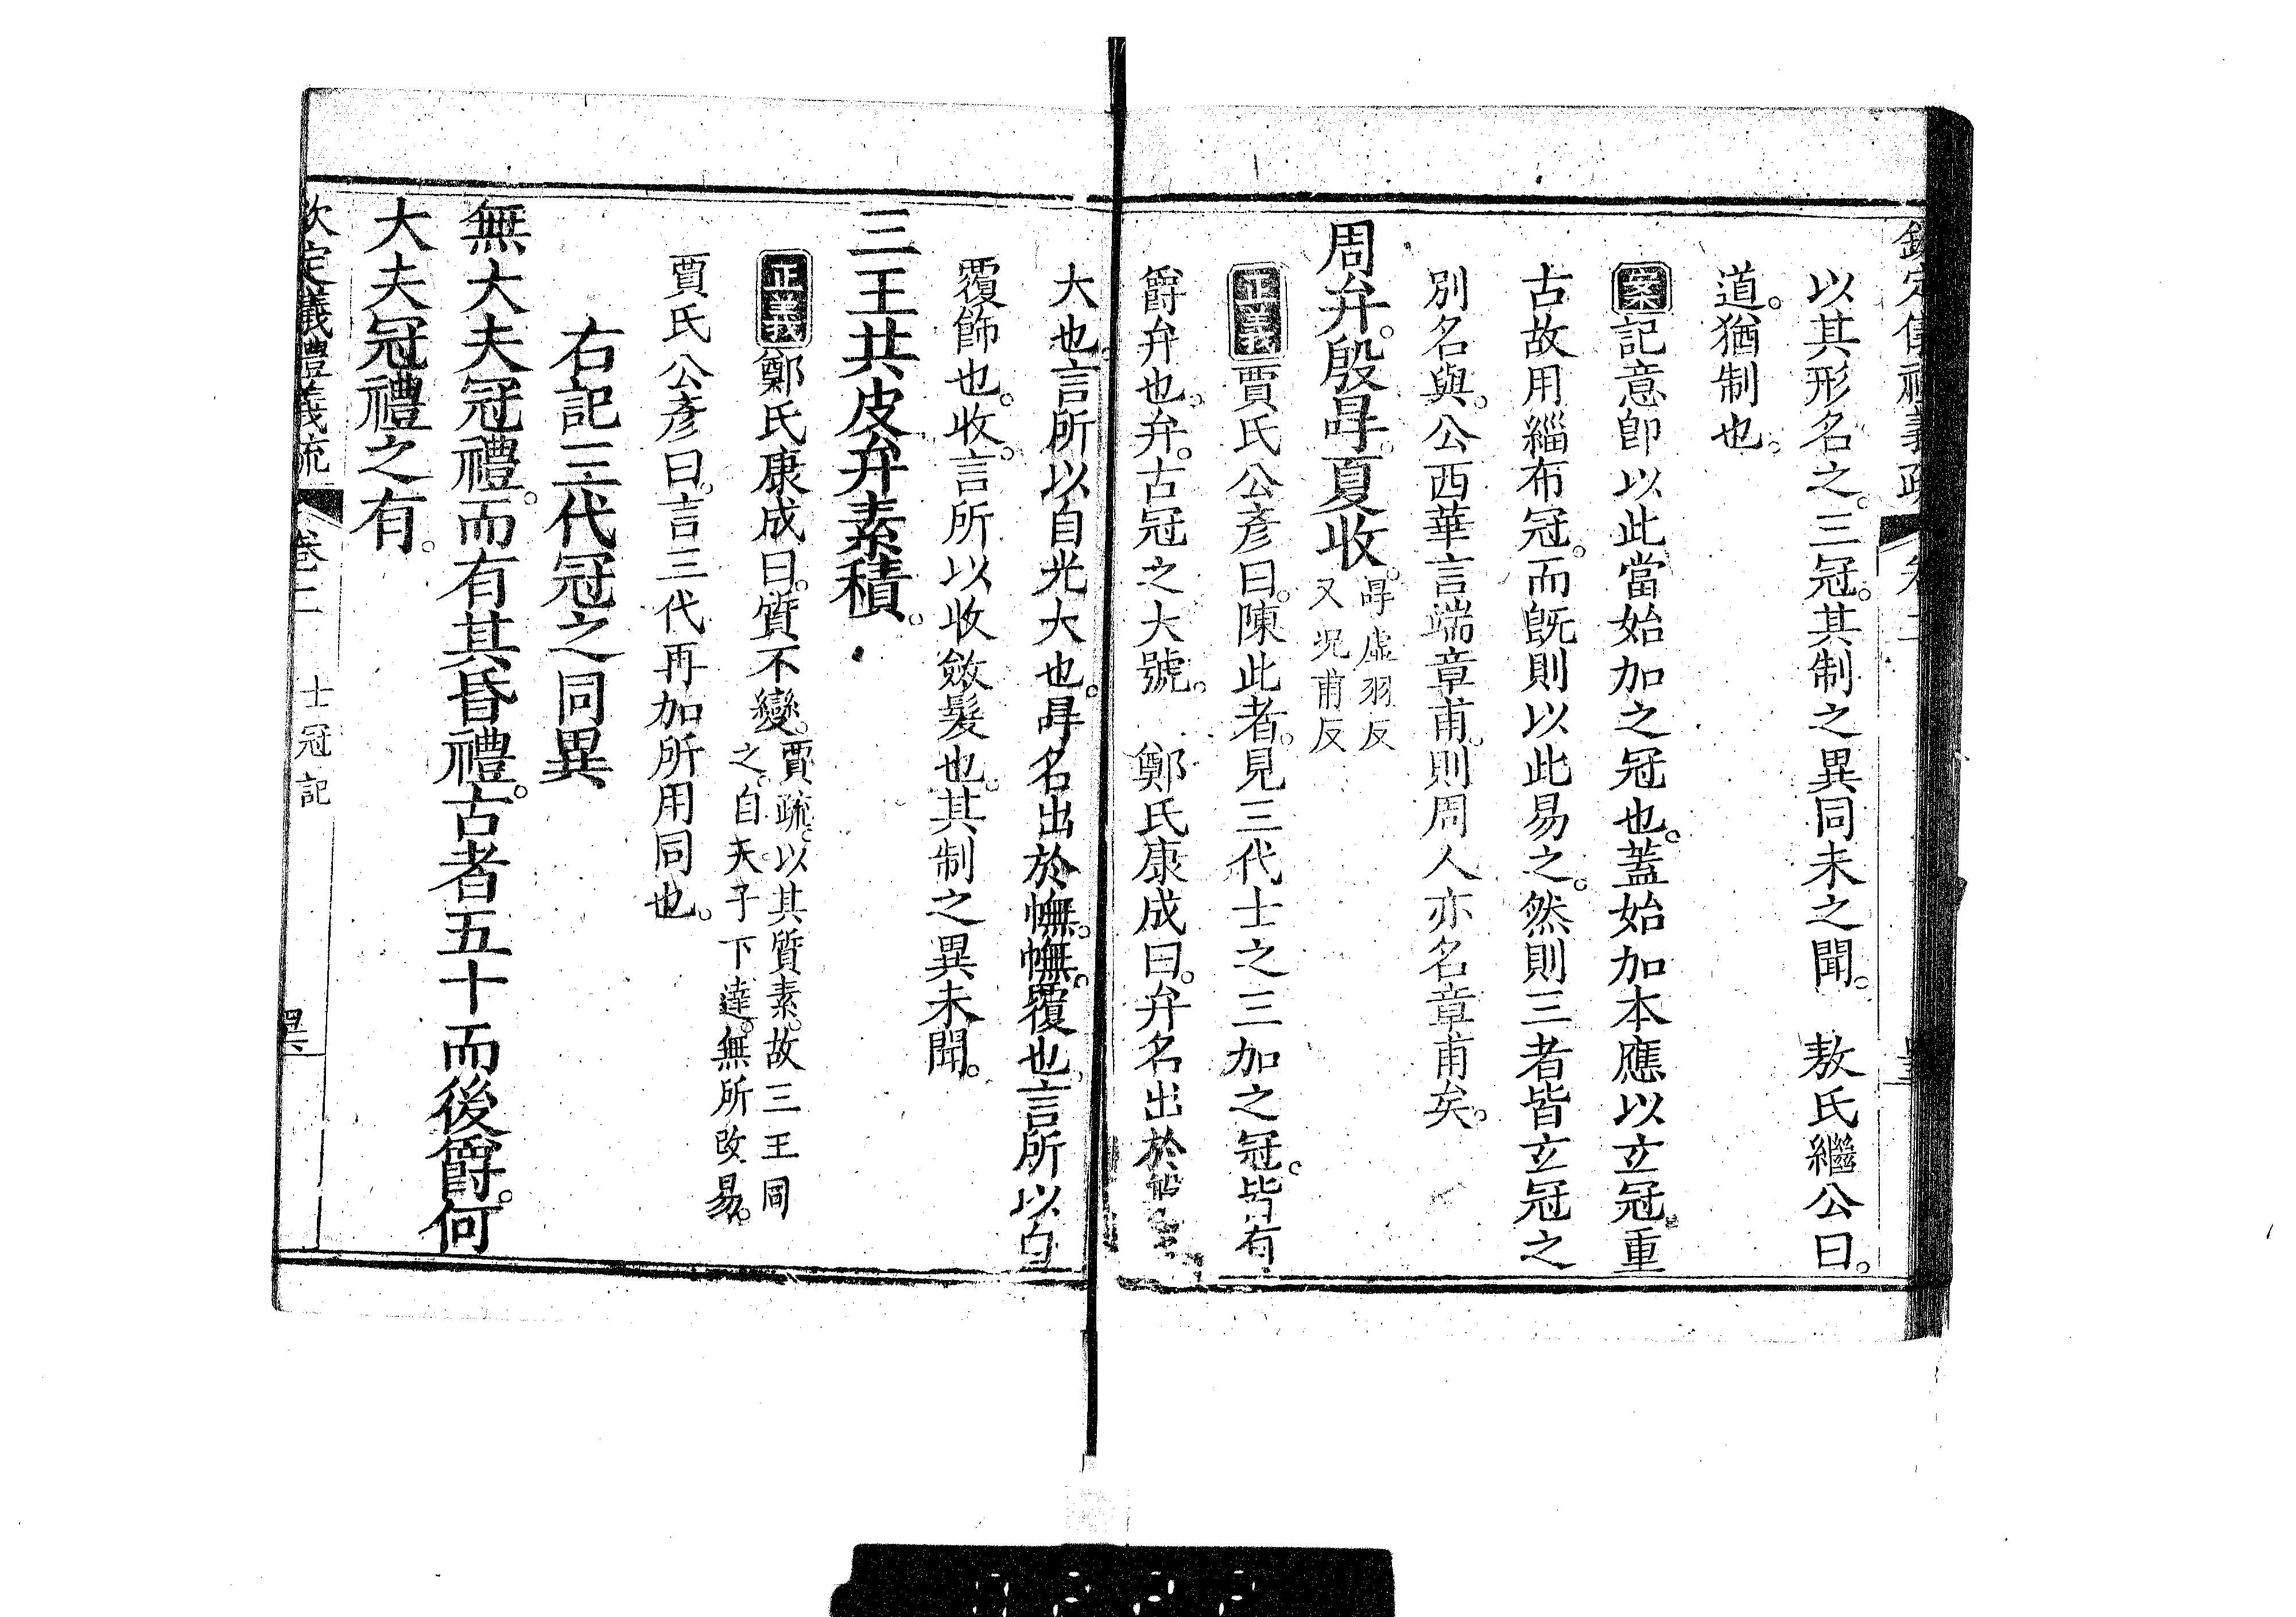 以其形名之。三冠。其制之異同未之聞。　敖氏繼公曰。
道。猶制也。
案記意卽以此當始加之冠也。蓋始加本應以玄冠。重
古故用緇布冠。而旣則以此易之。然則三者皆玄冠之
別名與。公西華言端章甫。則周人亦名章甫矣。
周弁。殷冔。夏收。冔虛羽反
又況甫反
正義賈氏公彥曰。陳此者。見三代士之三加之冠。皆有
爵弁也。弁。古冠之大號。　鄭氏康成曰。弁名出於
大也。言所以自光大也。冔名出於幠。幠。覆也。言所以自
覆飾也。收。言所以收斂髮也。其制之異未聞。
三王共皮弁素積。
正義鄭氏康成曰。質不變。賈疏。以其質素。故三王同
之。自天子下達。無所改易。
賈氏公彥曰。言三代再加所用同也。
右記三代冠之同異
無大夫冠禮。而有其昏禮。古者五十而後爵。何
大夫冠禮之有。
欽定儀禮義疏　卷二　士冠記